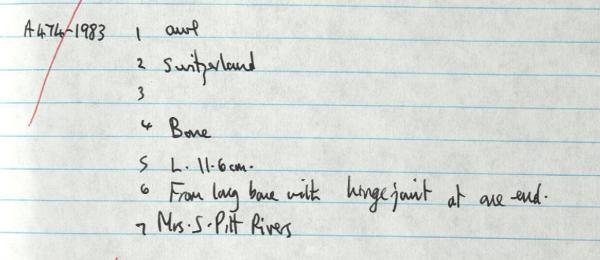 A474-1983 1 awl
2 Switzerland
3
4 Bone
5 L. 11.6cm.
6 From long bone with hinge joint at one end.
7 Mrs. S. Pitt Rivers